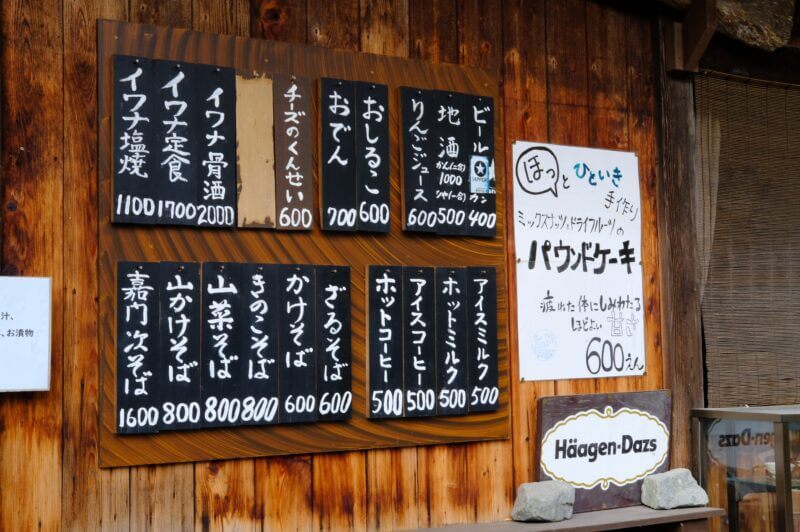 ビール
カン
400
地酒
かん(二合)
1000
ひや(一合)
500
りんごジュース
600
おしるこ
600
おでん
700
チーズのくんせい
600
イワナ骨酒
2000
イワナ定食
1700
イワナ塩焼
1100
アイスミルク
500
ホットミルク
500
アイスコーヒー
500
ホットコーヒー
500
ざるそば
600
かけそば
600
きのこそば
800
山菜そば
800
山かけそば
800
嘉門次そば
1600
ほっと
ひといき
手作り
ミックスナッツとドライフルーツの
パウンドケーキ
疲れた体にしみわたる
ほどよい甘さ
600えん
Häagen-Dazs
汁、
、お漬物